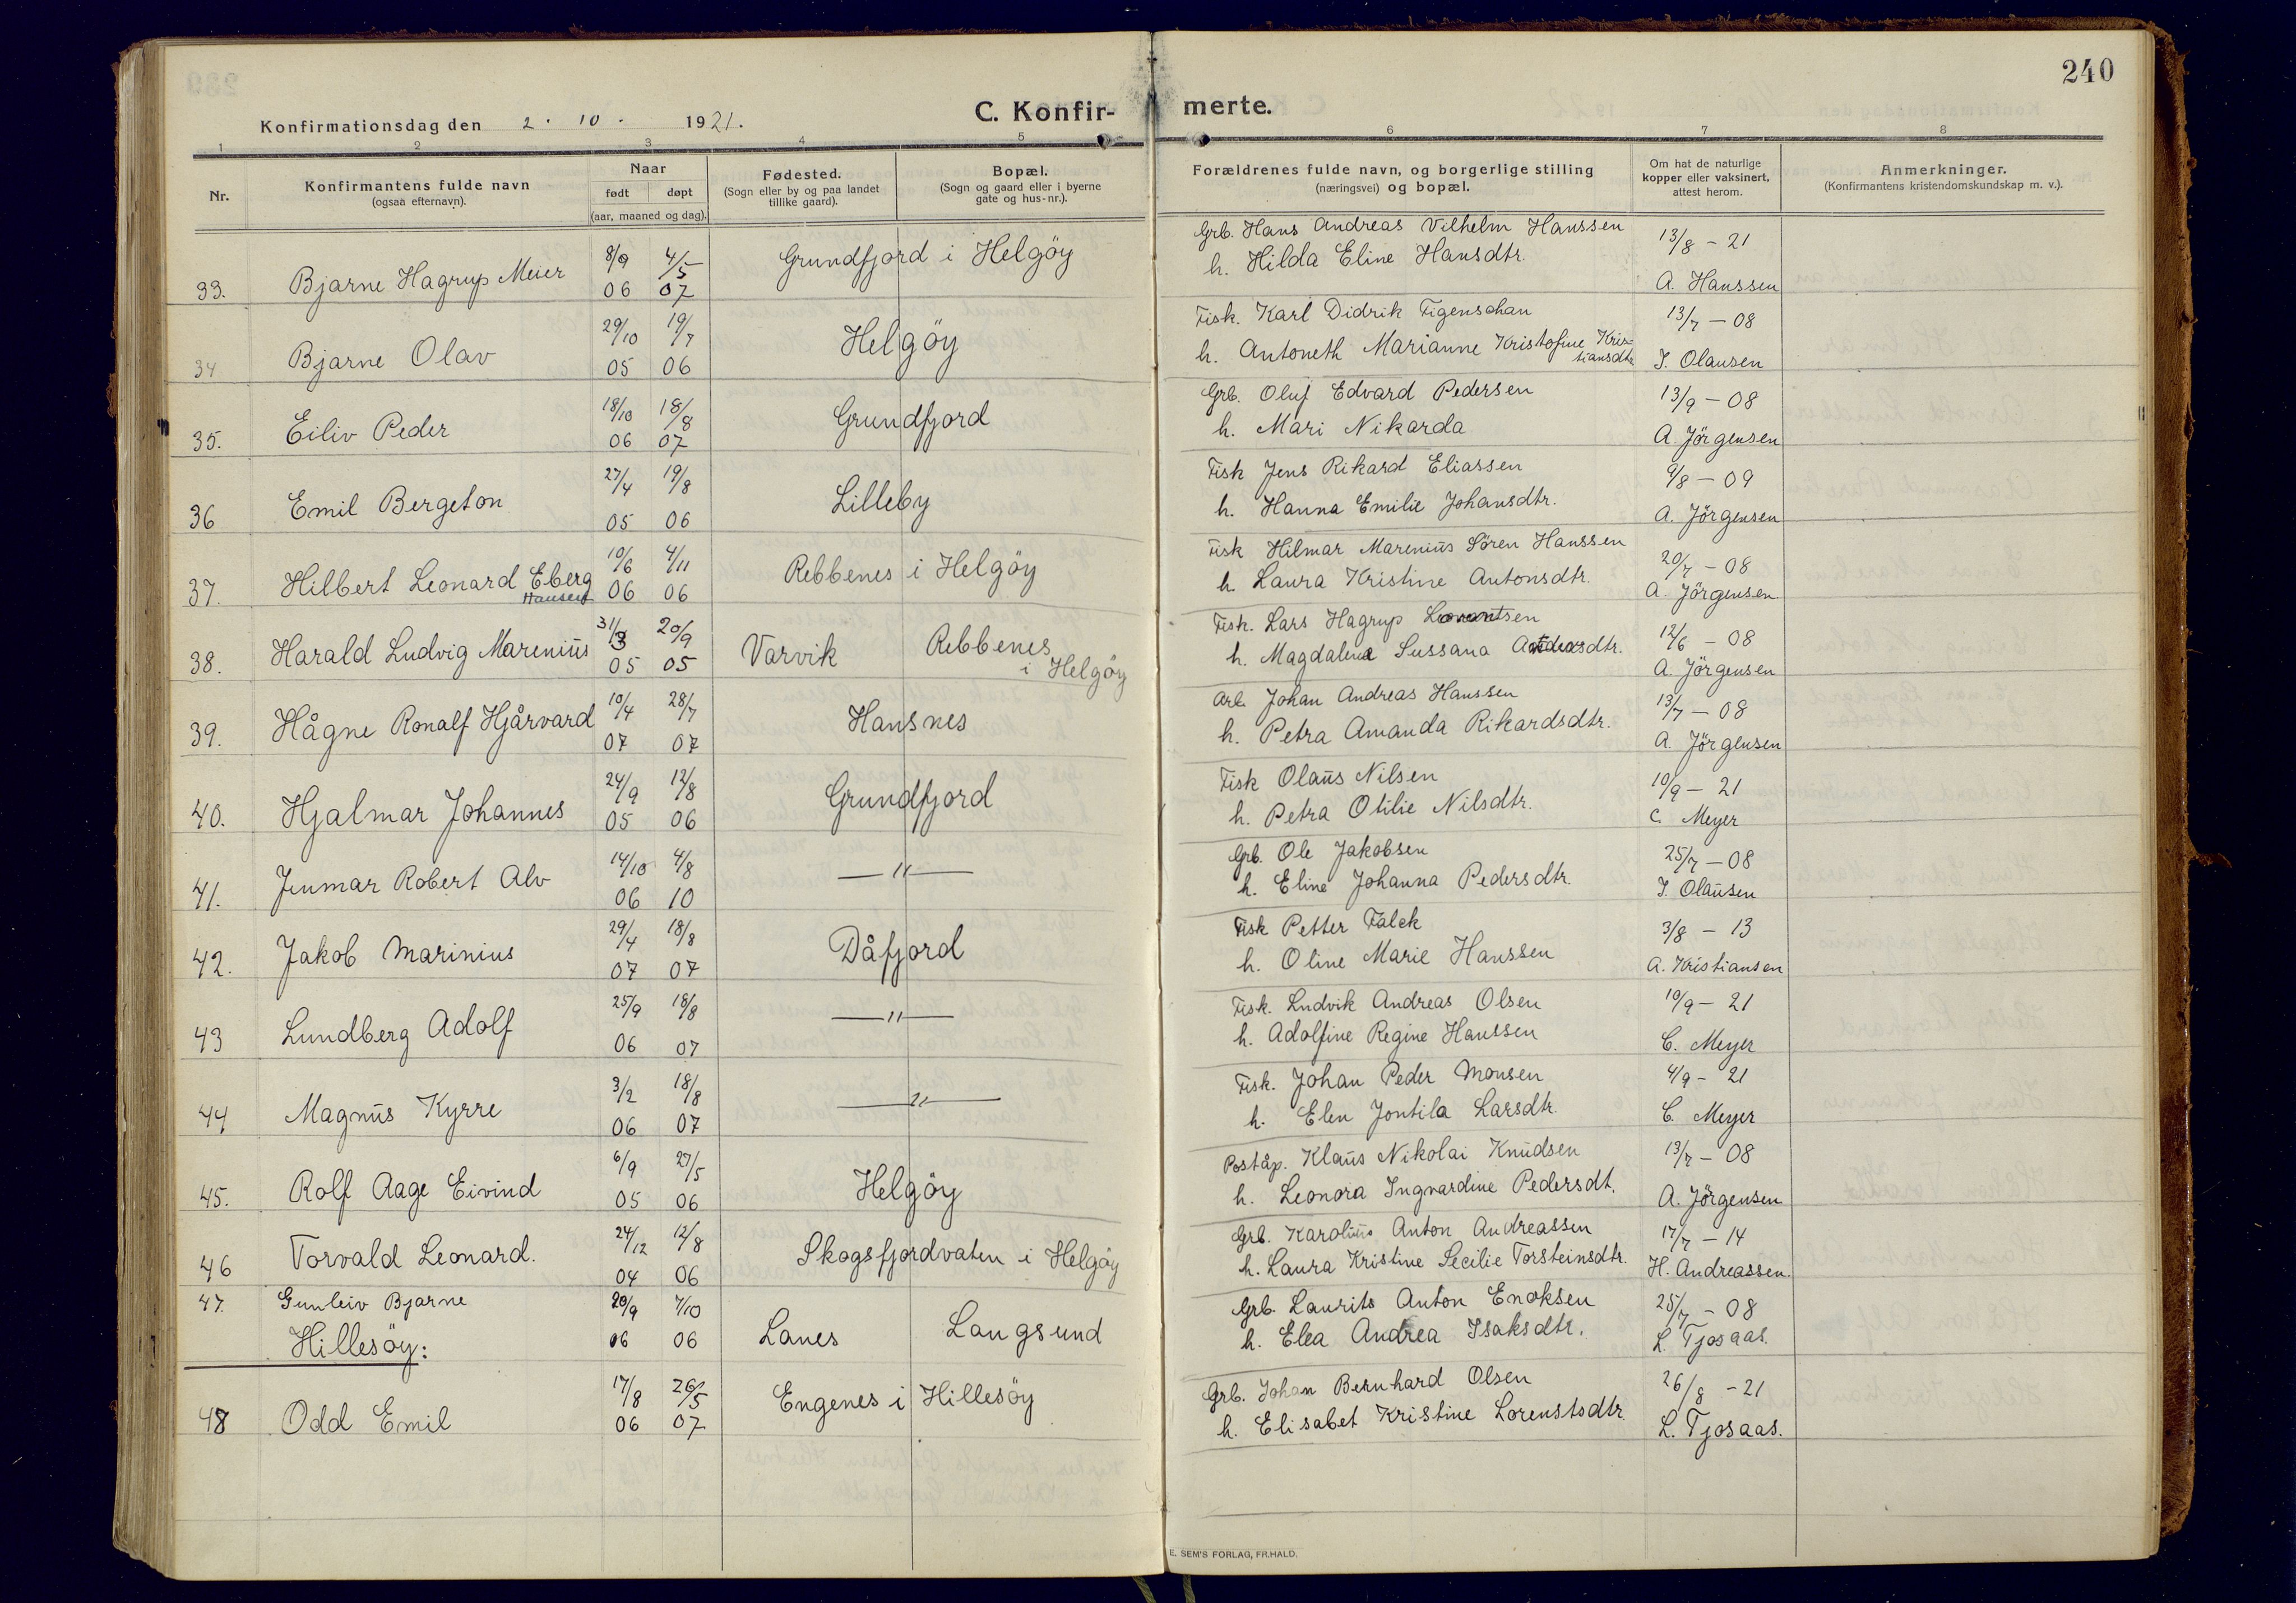 240
Konfirmationsdag den 2. 10. 1921.
C. Konfir- merte.
1 2 3 4 5 6 7 8
Nr.
Konfirmantens fulde navn
(ogsaa efternavn).
Naar
født døpt
(aar, maaned og dag).
Fødested.
(Sogn eller by og paa landet
tillike gaard).
Bopæl.
(Sogn og gaard eller i byerne
gate og hus-nr.).
Forældrenes fulde navn, og borgerlige stilling
(næringsvei) og bopæl.
Om hat de naturlige
kopper eller vaksinert,
attest herom.
Anmerkninger.
(Konfirmantens kristendomskundskap m. v.).
33. Bjarne Hagrup Meier 8/9 06 4/5 07 Grundfjord i Helgöy
Grb. Hans Andreas Vilhelm Hanssen 13/8 - 21
h. Hilda Eline Hansdtr. A. Hanssen
34 Bjarne Olav 29/10 05 19/7 06 Helgöy
Fisk. Karl Didrik Figenschau 13/7 - 08
h. Antoneth Marianne Kristofine Kris-
tiansdtr J. Olausen
35. Eiliv Peder 18/10 06 18/8 07 Grundfjord
Grb. Oluf Edvard Pedersen 13/9 - 08
h. Mari Nikarda A. Jörgensen
36 Emil Bergeton 27/4 05 19/8 06 Lilleby
Fisk Jens Rikard Eliassen 9/8 - 09
h. Hanna Emilie Johansdtr. A. Jörgensen
37. Hilbert Leonard Eberg 10/6 06 4/11 06 Rebbenes i Helgöy
Hansen
Fisk Hilmar Marenius Sören Hanssen 20/7 - 08
h. Laura Kristine Antonsdtr. A. Jörgensen
38. Harald Ludvig Marenius 31/3 05 20/9 05 Varvik Rebbenes
i Helgöy
Fisk. Lars Hagrup 12/6 - 08
h. Magdalena Sussana A. Jörgensen
39. Hågne Ronalf Hjårvard 10/4 07 28/7 07 Hansnes
Arb. Johan Andreas Hanssen 13/7 - 08
h. Petra Amanda Rikardsdtr. A. Jörgensen
40. Hjalmar Johannes 24/9 05 12/8 06 Grundfjord
Fisk Olaus Nilsen 10/9 - 21
h. Petra Otilie Nilsdtr. C. Meyer
41. Jenmar Robert Alv 14/10 06 4/8 10 — " —
Grb. Ole Jakobsen 25/7 - 08
h. Eline Johanna Pedersdtr. J. Olausen
42. Jakob Marinius 29/4 07 18/8 07 Dåfjord
Fisk Petter Falck 3/8 - 13
h. Oline Marie Hanssen A. Kristiansen
43 Lundberg Adolf 25/9 06 18/8 07 — " —
Fisk. Ludvik Andreas Olsen 10/9 - 21
h. Adolfine Regine Hanssen C. Meyer
44 Magnus Kyrre 3/2 06 18/8 07 — " —
Fisk. Johan Peder Monsen 4/9 - 21
h. Elen Jontila Larsdtr. C. Meyer
45. Rolf Aage Eivind 6/9 05 27/5 06 Helgöy
Poståp. Klaus Nikolai Knudsen 13/7 - 08
h. Leonora Ingvardine Pedersdt. A. Jörgensen
46 Torvald Leonard. 24/12 04 12/8 06 Skogsfjordvaten i Helgöy
Grb. Karolius Anton Andreassen 17/7 - 14
h. Laura Kristine Secilie Torsteinsdtr. H. Andreassen.
47. Gunleiv Bjarne 20/9 06 7/10 06 Lanes Langsund
Grb. Laurits Anton Enoksen 25/7 - 08
h. Elea Andrea Isaksdtr. L. Tjosaas.
Hillesöy:
48 Odd Emil 17/8 06 26/5 07 Engenes i Hillesöy
Grb. Johan Bernhard Olsen 26/8 - 21
h. Elisabet Kristine Lorenstsdtr. L. Tjosaas.
E. SEM'S FORLAG, FR.HALD.